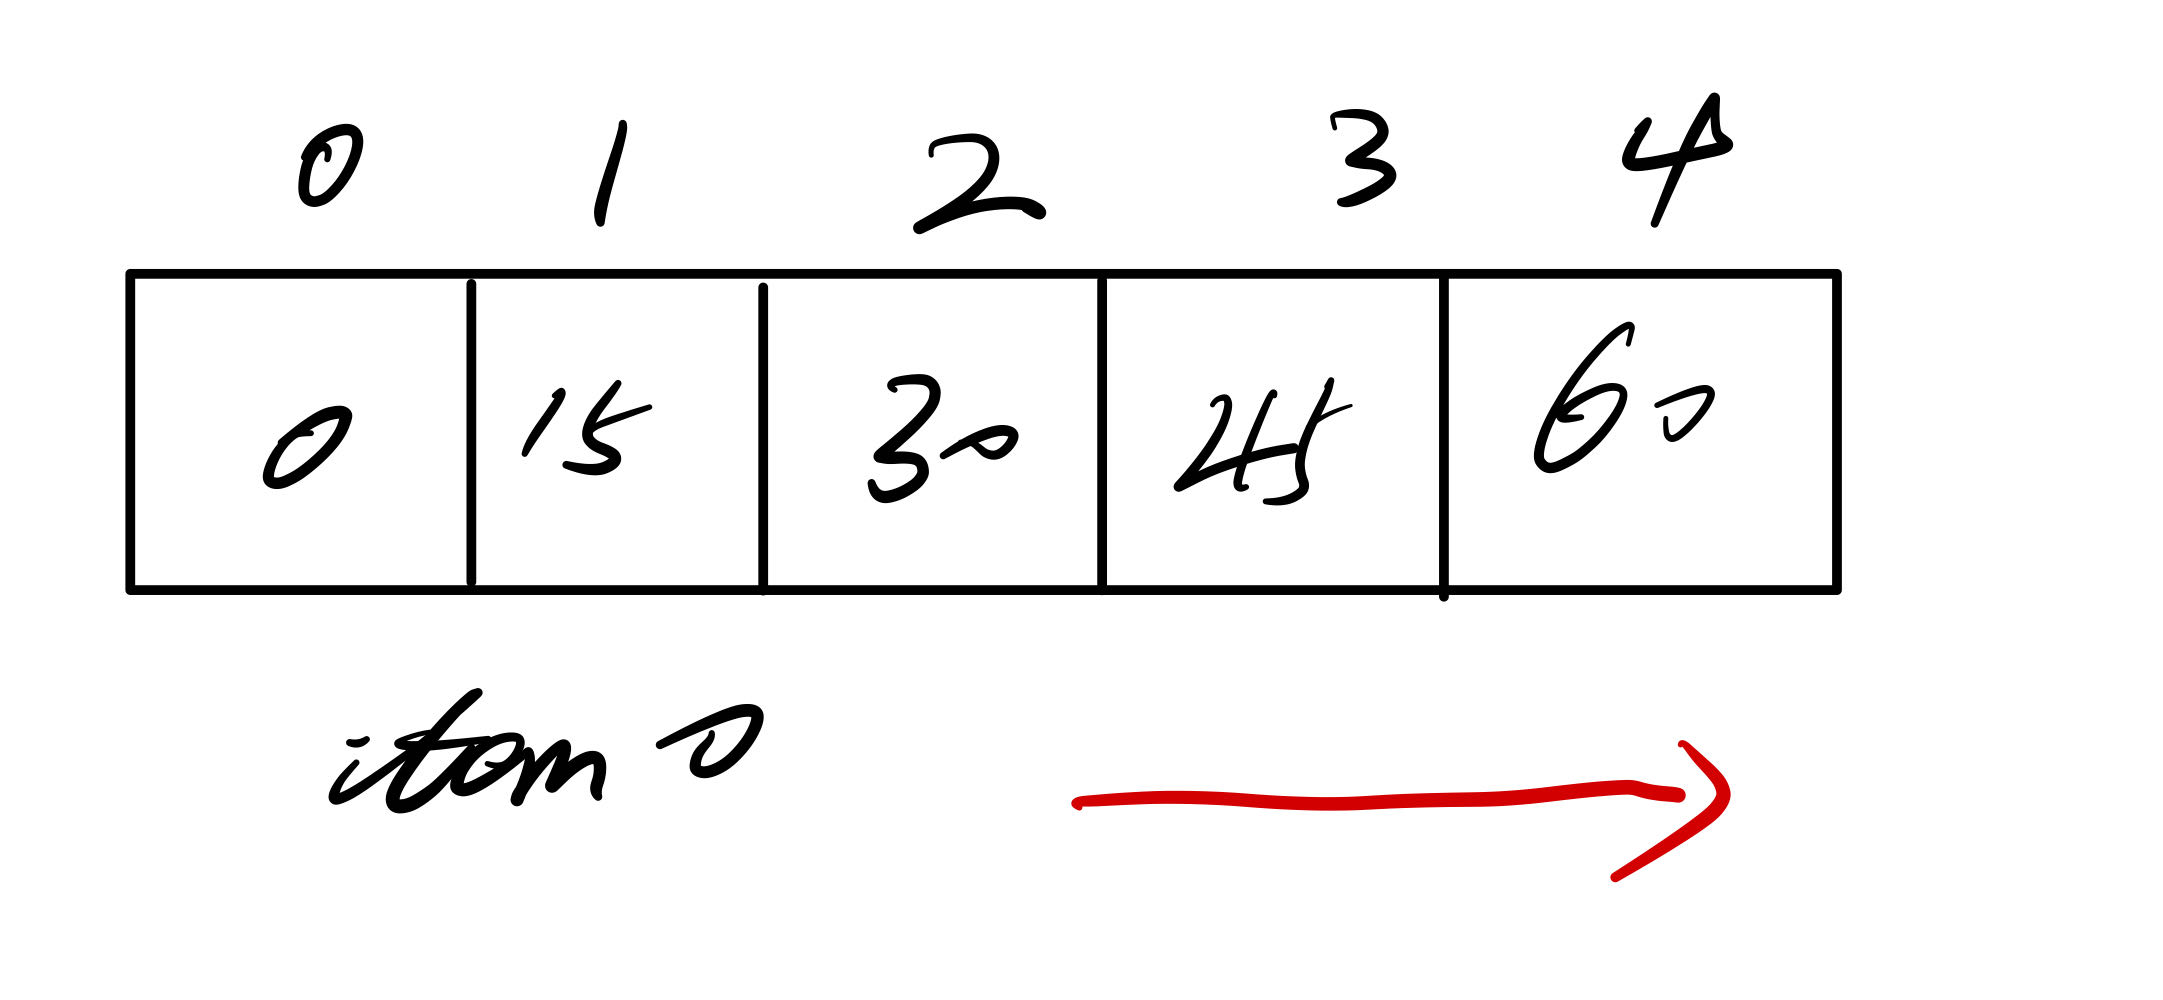 0 1 2 3 4
0 15 30 45 60
item 0